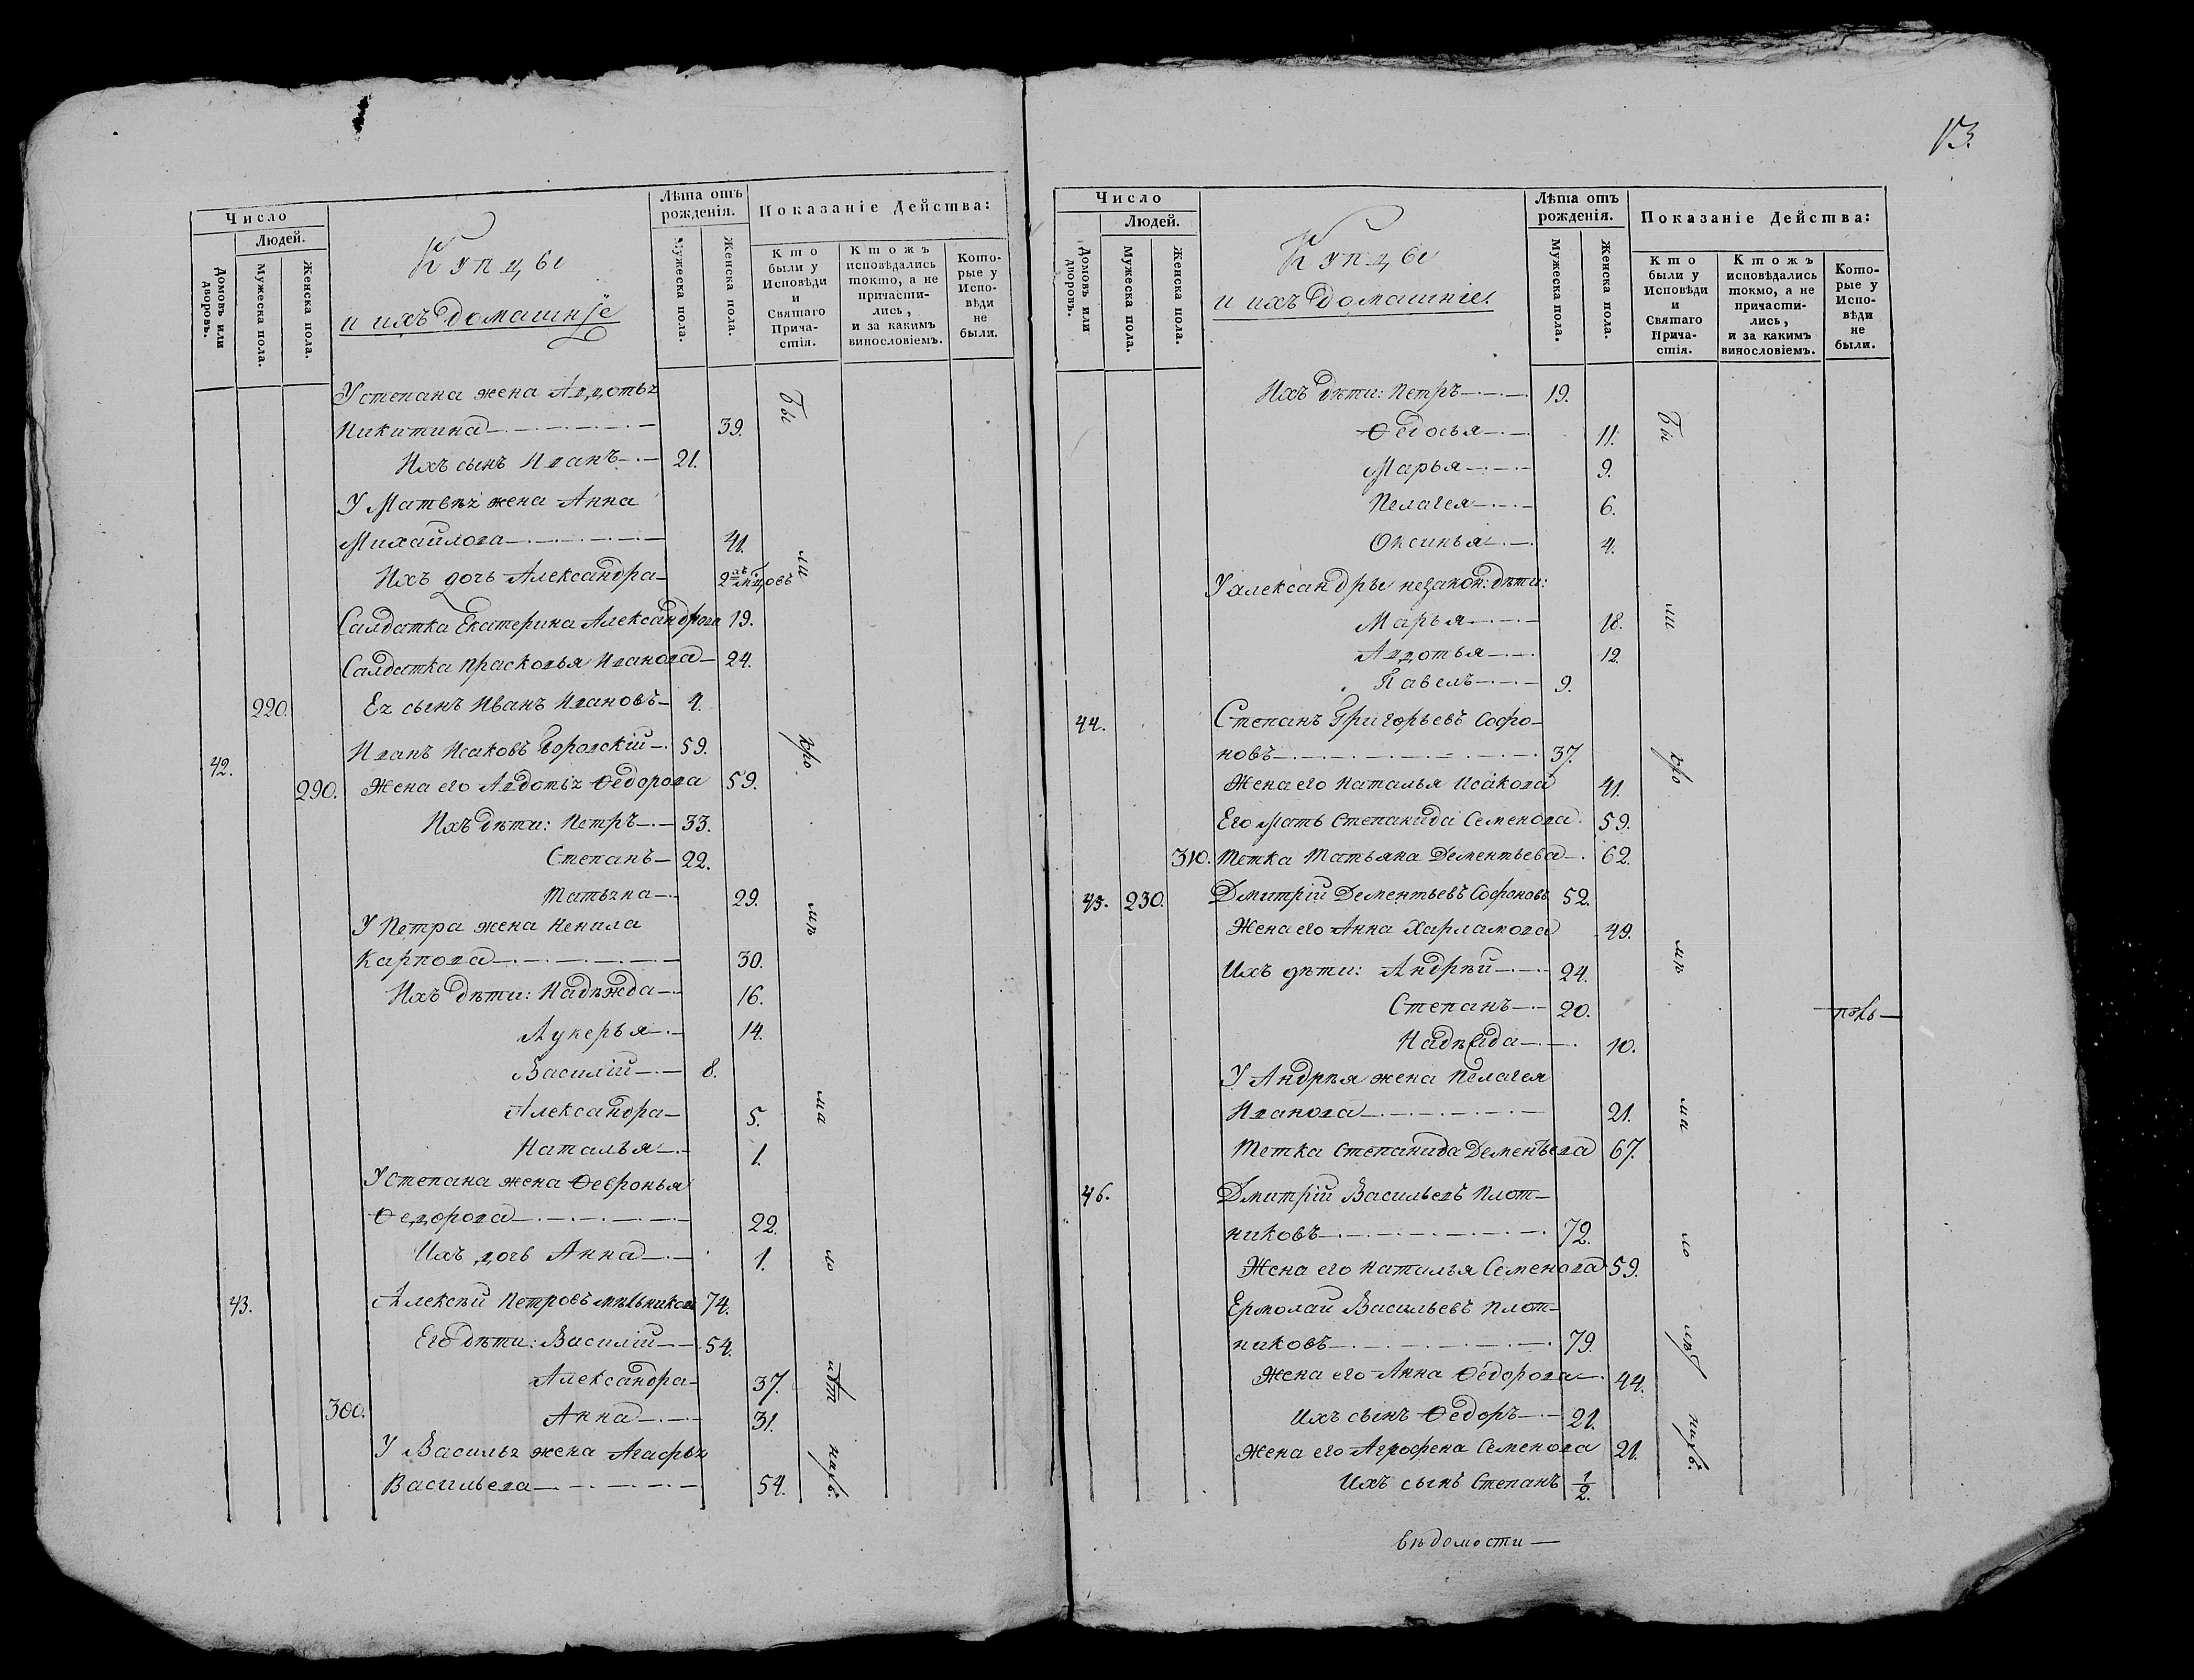 Число
Людей.
Домовъ или дворовъ.
Мужеска пола.
Женска пола.
Купцы
и ихъ домашніе
Лѣта отъ рожденія.
Мужеска пола.
Женска пола.
Показаніе Действа:
Кто были у Исповѣди и Святаго Прича-стія.
Ктожъ исповѣдались токмо, а не причасти-лись, и за какимъ винословіемъ.
Кото-рые у Испо-вѣди не были.
У Степана жена Авдотья
Никитина 39.
Ихъ сынъ Иванъ 21.
У Матвѣя жена Анна
Михайлова 41.
Ихъ дочь Александра 2
Салдатка Екатерина Александрова 19.
Салдатка Прасковья Иванова 24.
220. Ея сынъ Иванъ Ивановъ 4.
42. Иванъ Исаковъ 59.
290. Жена его Авдотья Ѳедорова 59.
Ихъ дѣти: Петръ 33.
Степанъ 22.
Татьяна 29.
У Петра жена Ненила
Карпова 30.
Ихъ дѣти: Надѣжда 16.
Лукерья 14.
Василій 8.
Александра 5.
Наталья 1.
У Степана жена Ѳевронья
Ѳедорова 22.
Ихъ дочь Анна 1.
43. Алексѣй Петровъ Мѣльниковъ 74.
Его дѣти: Василій 54.
Александра 37.
300. Анна 31.
У Василья жена Агафья
Васильева 54.
13.
Число
Людей.
Домовъ или дворовъ.
Мужеска пола.
Женска пола.
Купцы
и ихъ домашніе.
Лѣта отъ рожденія.
Мужеска пола.
Женска пола.
Показаніе Действа:
Кто были у Исповѣди и Святаго Прича-стія.
Ктожъ исповѣдались токмо, а не причасти-лись, и за какимъ винословіемъ.
Кото-рые у Испо-вѣди не были.
Ихъ дѣти: Петръ 19.
Ѳедосья 11.
Марья 9.
Пелагея 6.
Оксинья 4.
У Александры незакон: дѣти:
Марья 18.
Авдотья 12.
Павелъ 9.
44. Степанъ Григорьевъ Софо-
новъ 37.
Жена его Наталья Исакова 41.
Его мать Степанида Семенова 59.
310. Тетка Татьяна Дементьева 62.
45. 230. Дмитрій Дементьевъ Софоновъ 52.
Жена его Анна Харламова 49.
Ихъ дѣти: Андрѣй 24.
Степанъ 20.
Надѣжда 10.
У Андрѣя жена Пелагея
Иванова 21.
Тетка Степанида Деменьева 67.
46. Дмитрій Васильевъ Плот-
никовъ 72.
Жена его Наталья Семенова 59.
Ермолай Васильевъ Плот-
никовъ 79.
Жена его Анна Ѳедорова 44.
Ихъ сынъ Ѳедоръ 21.
Жена его Агрофена Семенова 21.
Ихъ сынъ Степанъ 1/2.
вѣдомости